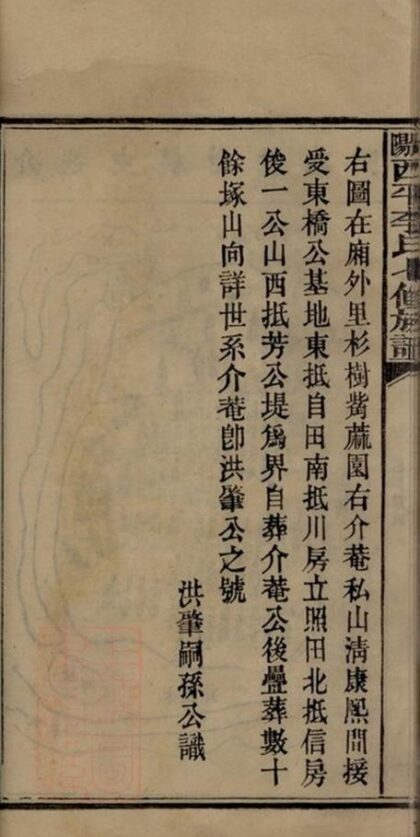 右圖在廂外里杉樹嵅蔴園右介菴私山清康熙間接
受東橋公基地東抵自田南抵川房立照田北抵信房
俊一公山西抵芳公堤爲界自葬介菴公後疊葬數十
餘塚山向詳世系介菴卽洪肇公之號
洪肇嗣孫公識
西平李氏七修族譜